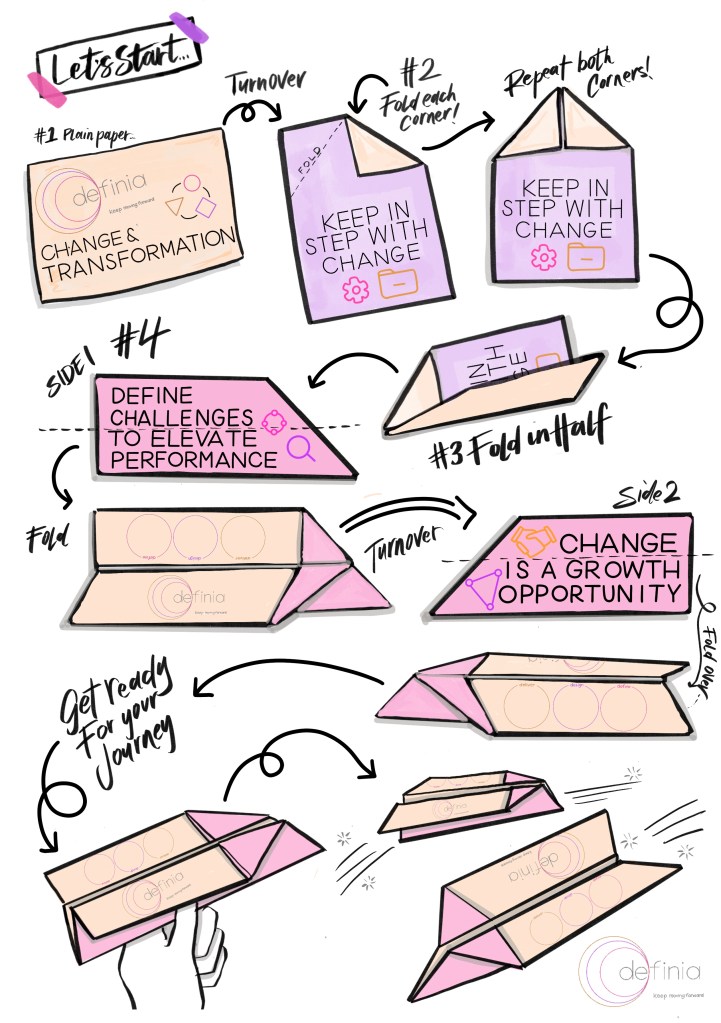 Let's Start...
Turnover
#2
Fold each
Corner!
Repeat both
Corners!
#1 Plain paper...
definia
Keep moving forward
CHANGE &
TRANSFORMATION
FOLD
KEEP IN
STEP WITH
CHANGE
KEEP IN
STEP WITH
CHANGE
SIDE 1 #4
DEFINE
CHALLENGES
TO ELEVATE
PERFORMANCE
IN
TH
E
#3 Fold in Half
Fold
definia
Keep moving forward
Turnover
Side 2
CHANGE
IS A GROWTH
OPPORTUNITY
Fold over
design
define
Get ready
For your
Journey
definia
definia
definia
definia
Keep moving forward